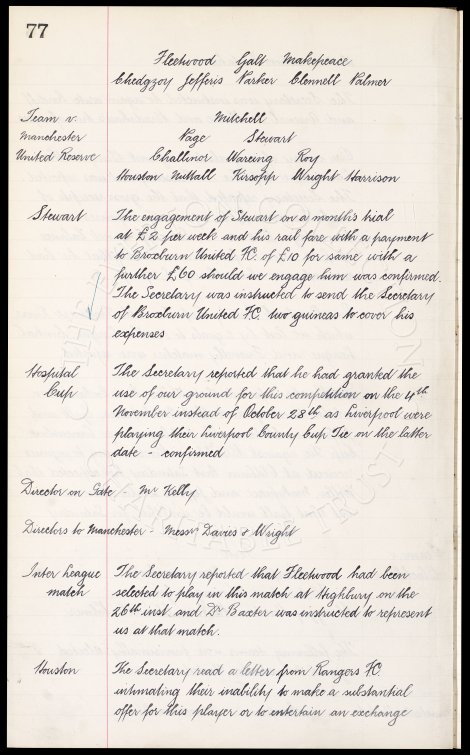 77
Fleetwood Galt Makepeace
Chedgzoy Jefferis Parker Clennell Palmer
Team v. Mitchell
Manchester Page Stewart
United Reserve Challinor Wareing Roy
Houston Nuttall Kirsopp Wright Harrison
Stewart The engagement of Stewart on a month's trial
at £2 per week and his rail fare with a payment
to Broxburn United FC. of £10 for same with a
further £60 should we engage him was confirmed.
The Secretary was instructed to send the Secretary
of Broxburn United FC. two guineas to cover his
expenses
Hospital The Secretary reported that he had granted the
Cup use of our ground for this competition on the 4th
November instead of October 28th as Liverpool were
playing their Liverpool County Cup Tie on the latter
date - confirmed
Director on Gate - Mr Kelly
Directors to Manchester - Messrs Davies & Wright
Inter League The Secretary reported that Fleetwood had been
match selected to play in this match at Highbury on the
26th inst. and Dr Baxter was instructed to represent
us at that match.
Houston The Secretary read a letter from Rangers FC.
intimating their inability to make a substantial
offer for this player or to entertain an exchange